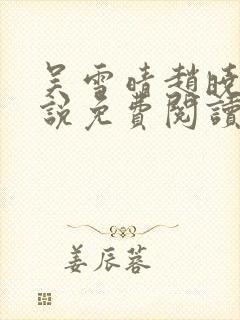 吴雪晴趙晓
說免費閱讀
姜辰蓉